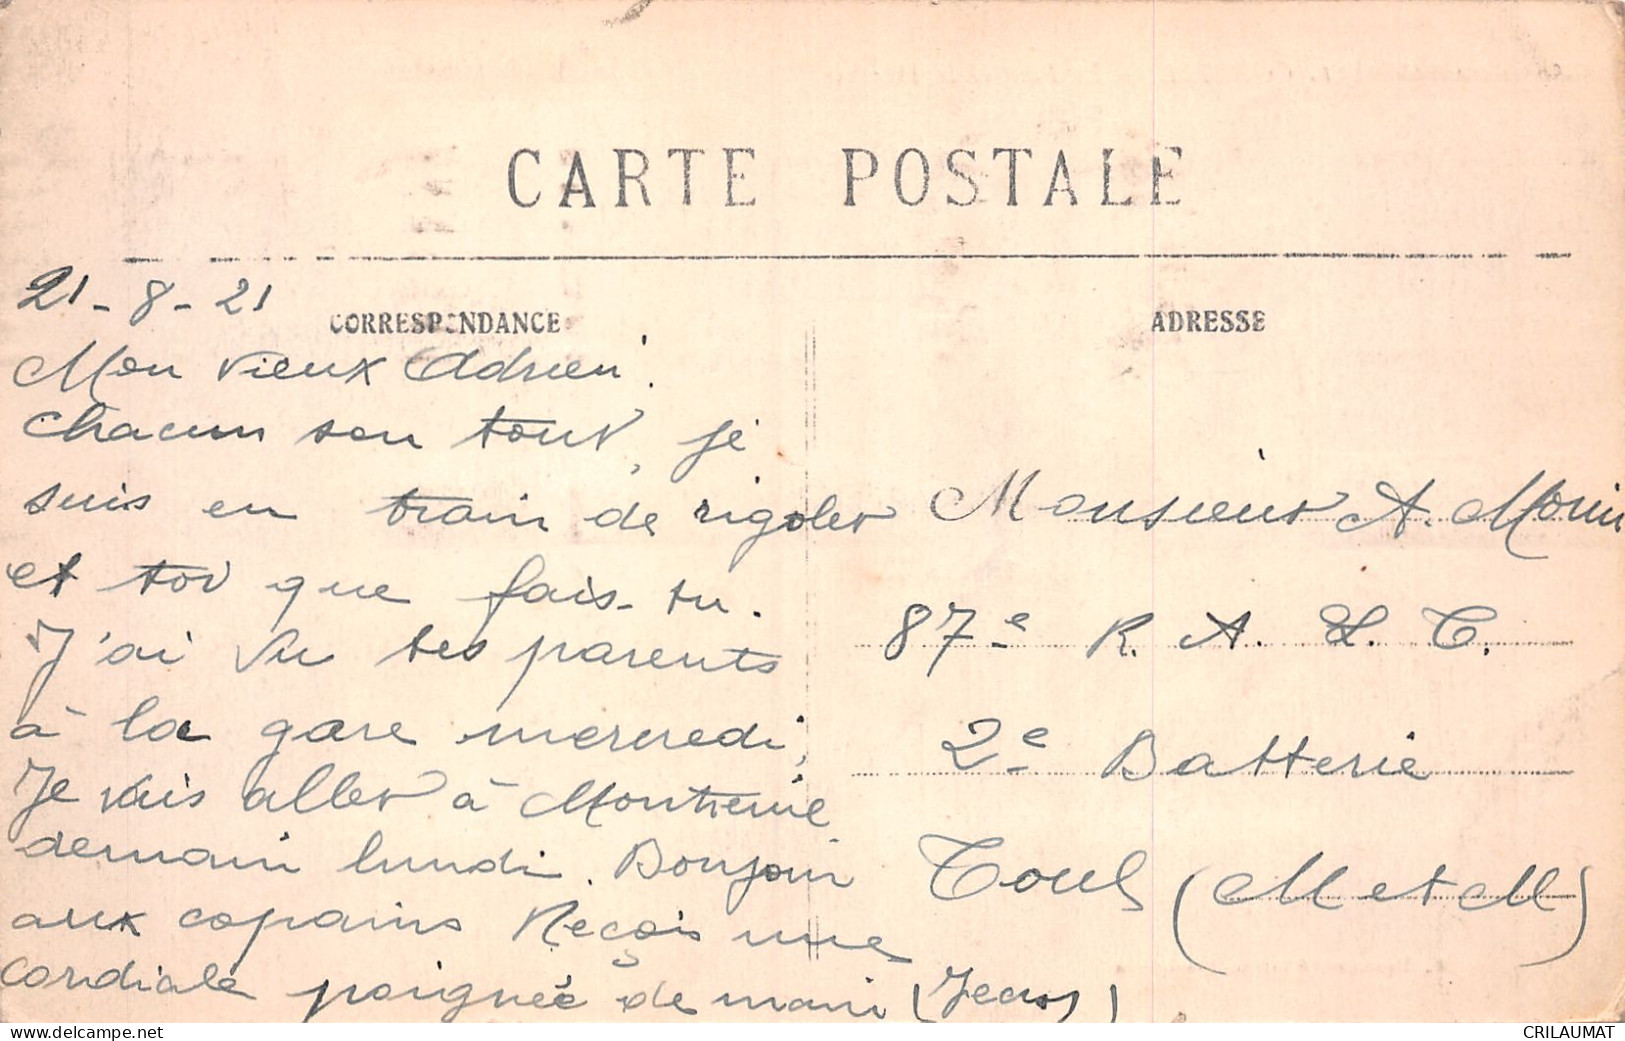 CARTE POSTALE
21-8-21
CORRESPONDANCE
Mon vieux Adrien.
chacun son tour, je
suis en train de rigoler
et toi que fais-tu.
J'ai vu tes parents
à la gare mercredi,
Je vais aller à
demain lundi. Bonjour
aux copains Reçois une
cordiale poignée de main (Jean)
ADRESSE
Monsieur A. Morin
87e R. A. L. T.
2e Batterie
Toul (M et M)
delcampe.net
CRILAUMAT